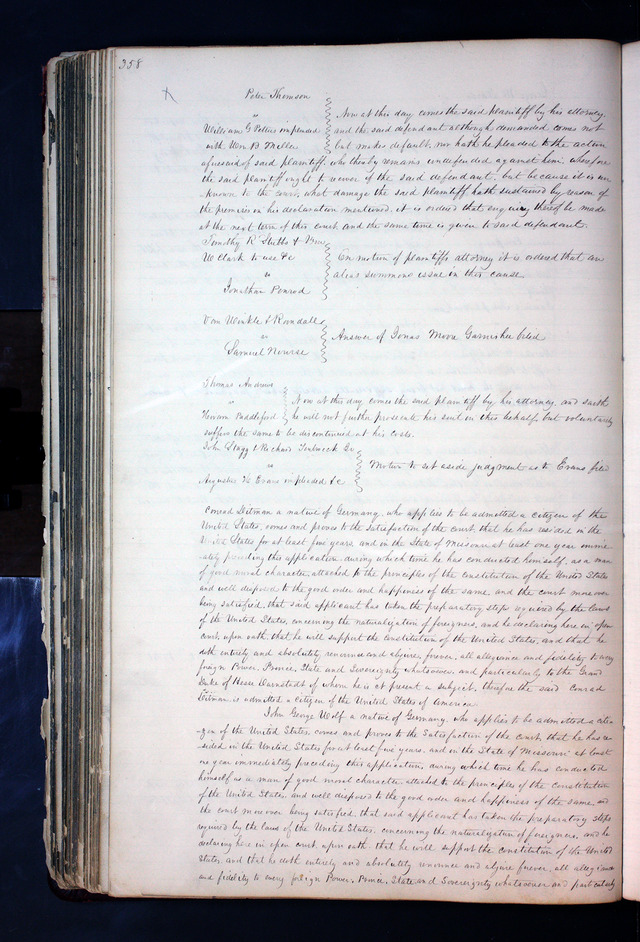 358
Peter Thomson
vs
William G Pettus impleaded
with Wm B. Miller
Now at this day comes the said plaintiff by his attorney,
and the said defendant although demanded comes not
but makes default, nor hath he pleaded to the action
aforesaid of said plaintiff, who thereby remains undefended against him; wherefore
the said plaintiff ought to recover of the said defendant, but because it is un
known to the court, what damage the said plaintiff hath sustained by reason of
the premises in his declaration mentioned, it is ordered that enquiry thereof be made
at the next term of this court and the same time is given to said defendant.
Timothy R Stebbs &
W Clark to use &c
vs
Jonathan Penrod
On motion of plaintiffs attorney it is ordered that an
alias summons issue in this cause
Van Winkle & Randall
vs
Samuel Nourse
Answer of Jonas Moore Garnishee filed
Thomas Andrews
vs
Hiram Puddleford
Now at this day comes the said plaintiff by his attorney, and saith
he will not further prosecute his suit in this behalf, but voluntarily
suffers the same to be discontinued at his costs.
John Stagg & Richard
vs
Augustus H. Evans impleaded &c
Motion to set aside judgment as to Evans filed
Conrad Ditman a native of Germany, who applies to be admitted a citizen of the
United States, comes and proves to the satisfaction of the court, that he has resided in the
United States for at least five years, and in the State of Missouri at least one year immedi
ately preceding this application, during which time he has conducted himself, as a man
of good moral character attached to the principles of the constitution of the United States
and well disposed to the good order and happiness of the same, and the court moreover
being satisfied, that said applicant has taken the preparatory steps required by the laws
of the United States, concerning the naturalization of foreigners, and he declaring here in open
court, upon oath, that he will support the constitution of the United States, and that he
doth entirely and absolutely renounce and abjure, forever, all allegiance and fidelity to every
foreign Power, Prince, State and Sovereignty whatsoever, and particularly to the Grand
Duke of Hesse Darmstadt of whom he is at present a subject, therefore the said Conrad
Ditman is admitted a citizen of the United States of America
John George Wolf a native of Germany, who applies to be admitted a citi
zen of the United States, comes and proves to the satisfaction of the court, that he has re
sided in the United States for at least five years, and in the State of Missouri at least
one year immediately preceding this application, during which time he has conducted
himself, as a man of good moral character attached to the principles of the constitution
of the United States, and well disposed to the good order and happiness of the same, and
the court moreover being satisfied, that said applicant has taken the preparatory steps
required by the laws of the United States, concerning the naturalization of foreigners, and he
declaring here in open court, upon oath, that he will support the constitution of the United
States, and that he doth entirely and absolutely renounce and abjure forever, all allegiance
and fidelity to every foreign Power, Prince, State and Sovereignty whatsoever and particularly